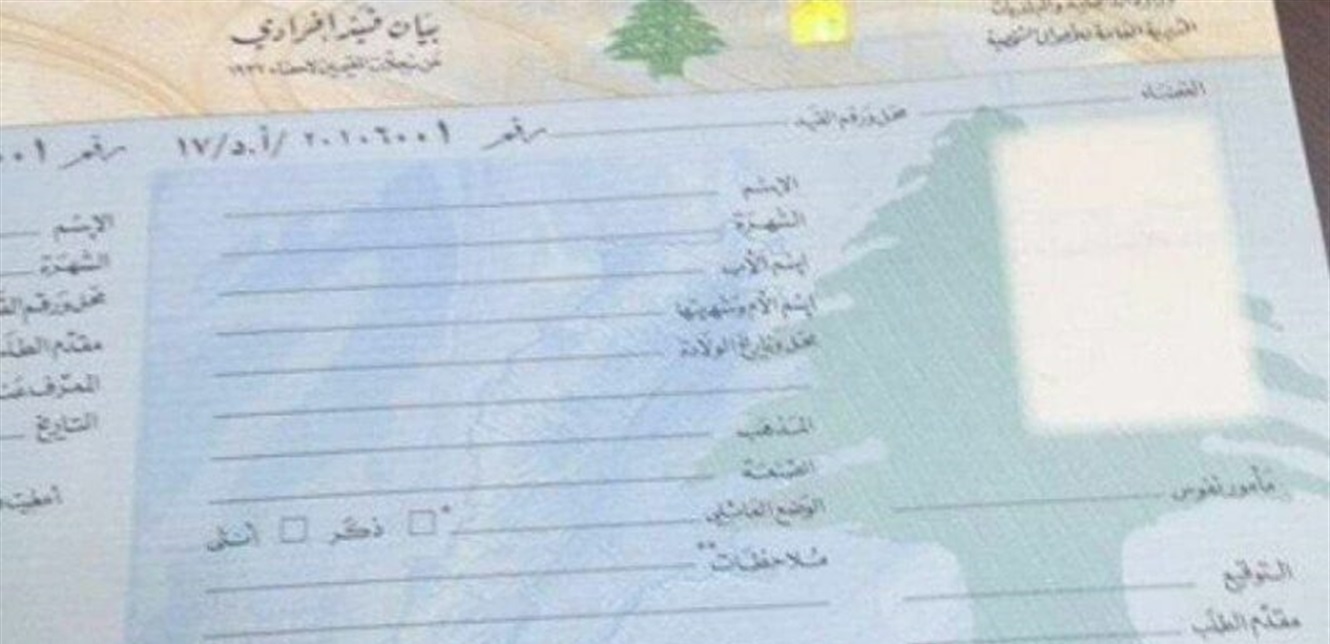 بيان قيد إفرادي
عن سجلات المقيمين لإحصاء ١٩٣٢
وزارة الداخلية والبلديات
المديرية العامة للأحوال الشخصية
القضاء
محل ورقم القيد
رقم ٢٠١٠٦٠٠١ /أ.د/١٧
الإسم
الشهرة
إسم الأب
إسم الأم وشهرتها
محل وتاريخ الولادة
المذهب
الصنعة
الوضع العائلي * ذكر أنثى
ملاحظات**
مأمور نفوس
التوقيع
مقدّم الطلب
رقم
الإسم
الشهرة
محل ورقم
مقدّم
المعرّف
التاريخ